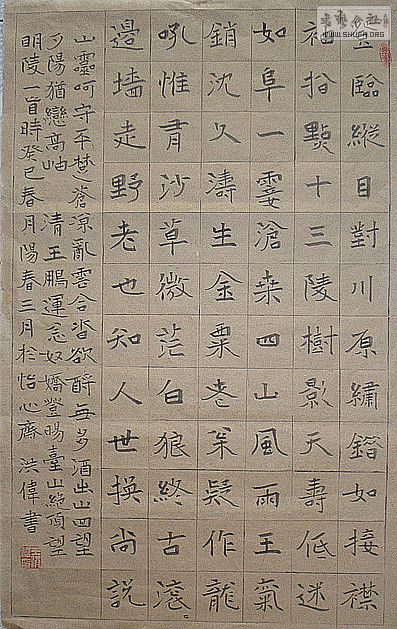 登臨縱目對川原繡錯如接襟
袖指點十三陵樹影天壽低迷
如阜一霎滄桒四山風雨王氣
銷沈久濤生金粟老枩疑作龍
吼惟有沙草微茫白狼終古滾〻
邊墻走野老也知人世換尚說
山靈呵守平楚蒼涼亂雲合沓欲酹無多酒出山回望
夕陽猶戀高岫 清王鵬運念奴嬌登暘臺山絕頂望
明陵一首時癸巳春月陽春三月於怡心齋 洪偉書
WWW.SHUFA.ORG